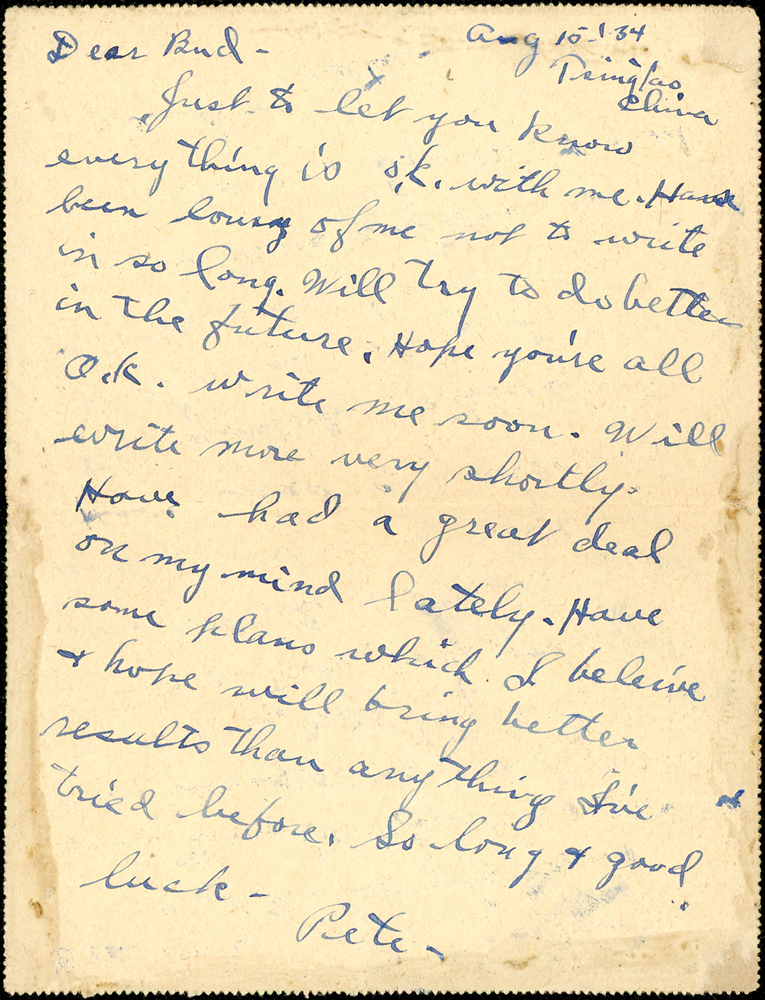 Dear Bud -
Aug 15 '34
Tsingtao,
China
Just to let you know
everything is o.k. with me. Have
been lousy of me not to write
in so long. Will try to do better
in the future. Hope you're all
O.k. write me soon. Will
write more very shortly.
Have had a great deal
on my mind lately. Have
some plans which I beleive
& hope will bring better
results than anything I've
tried before. So long & good
luck -
Pete -